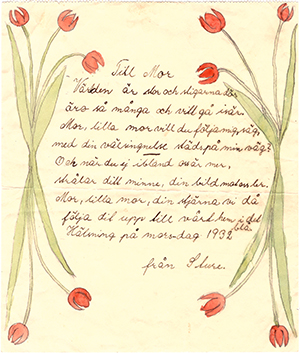 Till Mor
Världen är stor och stigarna där
äro så många och vill gå isär.
Mor, lilla mor vill du följa mig, säg,
med din välsingnulse städs på min väg?
Och när du ej ibland oss är mer,
strålar ditt minne, din bild mot oss ler.
Mor, lilla mor, din stjärna vi då
följa dit upp till vårt hem i det
blå.
Hälsning på morsdag 1932
från Sture.